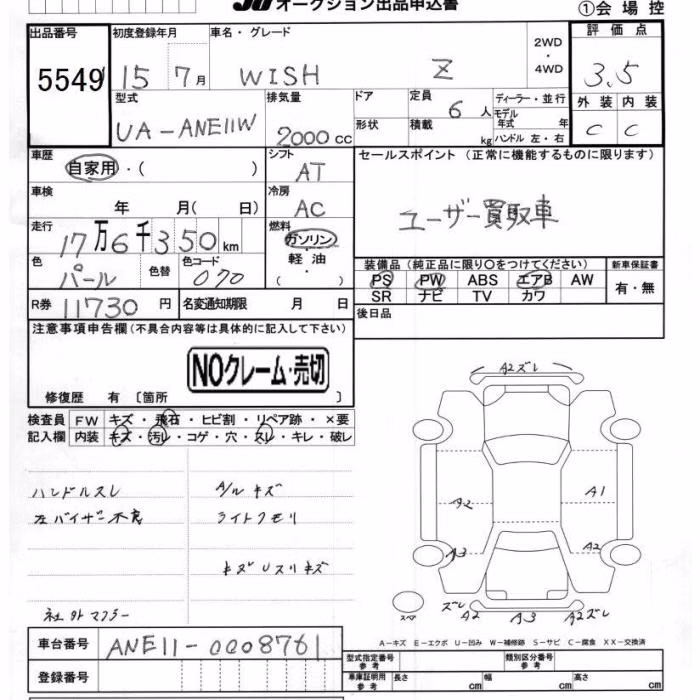 JU オークション出品申込書
①会場控
出品番号
5549
初度登録年月
15 7月
車名・グレード
WISH Z
2WD
・
4WD
評価点
3.5
型式
UA-ANE11W
排気量
2000cc
ドア
形状
定員 6人
積載 kg
ディーラー・並行
モデル年式 年
ハンドル 左・右
外装 内装
C C
車歴
自家用・( )
シフト
AT
セールスポイント (正常に機能するものに限ります)
ユーザー買取車
車検
年 月( 日)
冷房
AC
走行
17万6千350km
燃料
ガソリン
軽油
( )
色
パール
色替
色コード
070
装備品(純正品に限り○をつけてください)
PS PW ABS エアB AW
SR ナビ TV カワ
新車保証書
有・無
R券 11730円
名変通知期限 月 日
後日品
注意事項申告欄(不具合内容等は具体的に記入して下さい)
NOクレーム・売切
修復歴 有 〔箇所 〕
検査員 FW キズ・飛石・ヒビ割・リペア跡・×要
記入欄 内装 キズ・汚レ・コゲ・穴・スレ・キレ・破レ
ハンドルスレ
左バイザー不良
社外マフラー
A/Wキズ
ライトクモリ
キズUスリキズ
A2ズレ
A2 A1
A3 A2
スペア
ズレ A2 A3 A2ズレ
A-キズ E-エクボ U-凹み W-補修跡 S-サビ C-腐食 XX-交換済
車台番号 ANE11-0008761
登録番号
型式指定番号 参考
類別区分番号 参考
車庫証明用 参考 長さ cm 幅 cm 高さ cm